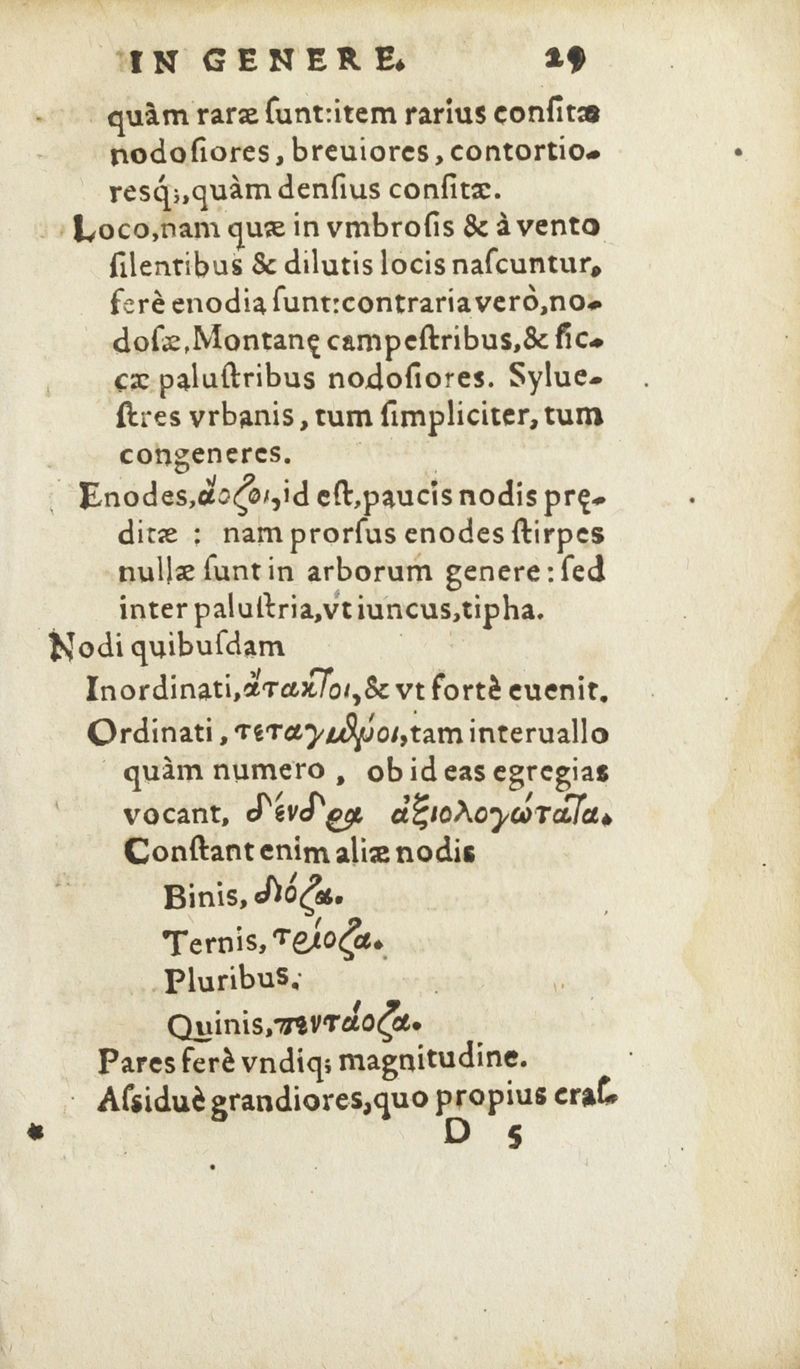 IN GENERE. 29
quàm raræ ſunt:item rarius conſitæ
nodoſiores, breuiores, contortio-
resq;,quàm denſius conſitæ.
Loco,nam quæ in vmbroſis & à vento
ſilentibus & dilutis locis naſcuntur,
ferè enodia ſunt:contraria verò,no-
doſæ,Montanę campeſtribus,& ſic-
cæ paluſtribus nodoſiores. Sylue-
ſtres vrbanis, tum ſimpliciter, tum
congeneres.
Enodes,ἄοζοι,id eſt,paucis nodis prę-
ditæ : nam prorſus enodes ſtirpes
nullæ ſunt in arborum genere: ſed
inter paluſtria,vt iuncus,tipha.
Nodi quibuſdam
Inordinati,ἄτακτοι,& vt fortè euenit.
Ordinati, τεταγμένοι,tam interuallo
quàm numero , ob id eas egregias
vocant, δένδρα ἀξιολογώτατα.
Conſtant enim aliæ nodis
Binis, δίοζα.
Ternis, τρίοζα.
Pluribus.
Quinis,πεντάοζα.
Pares ferè vndiq; magnitudine.
Aſsiduè grandiores,quo propius craſ-
D 5